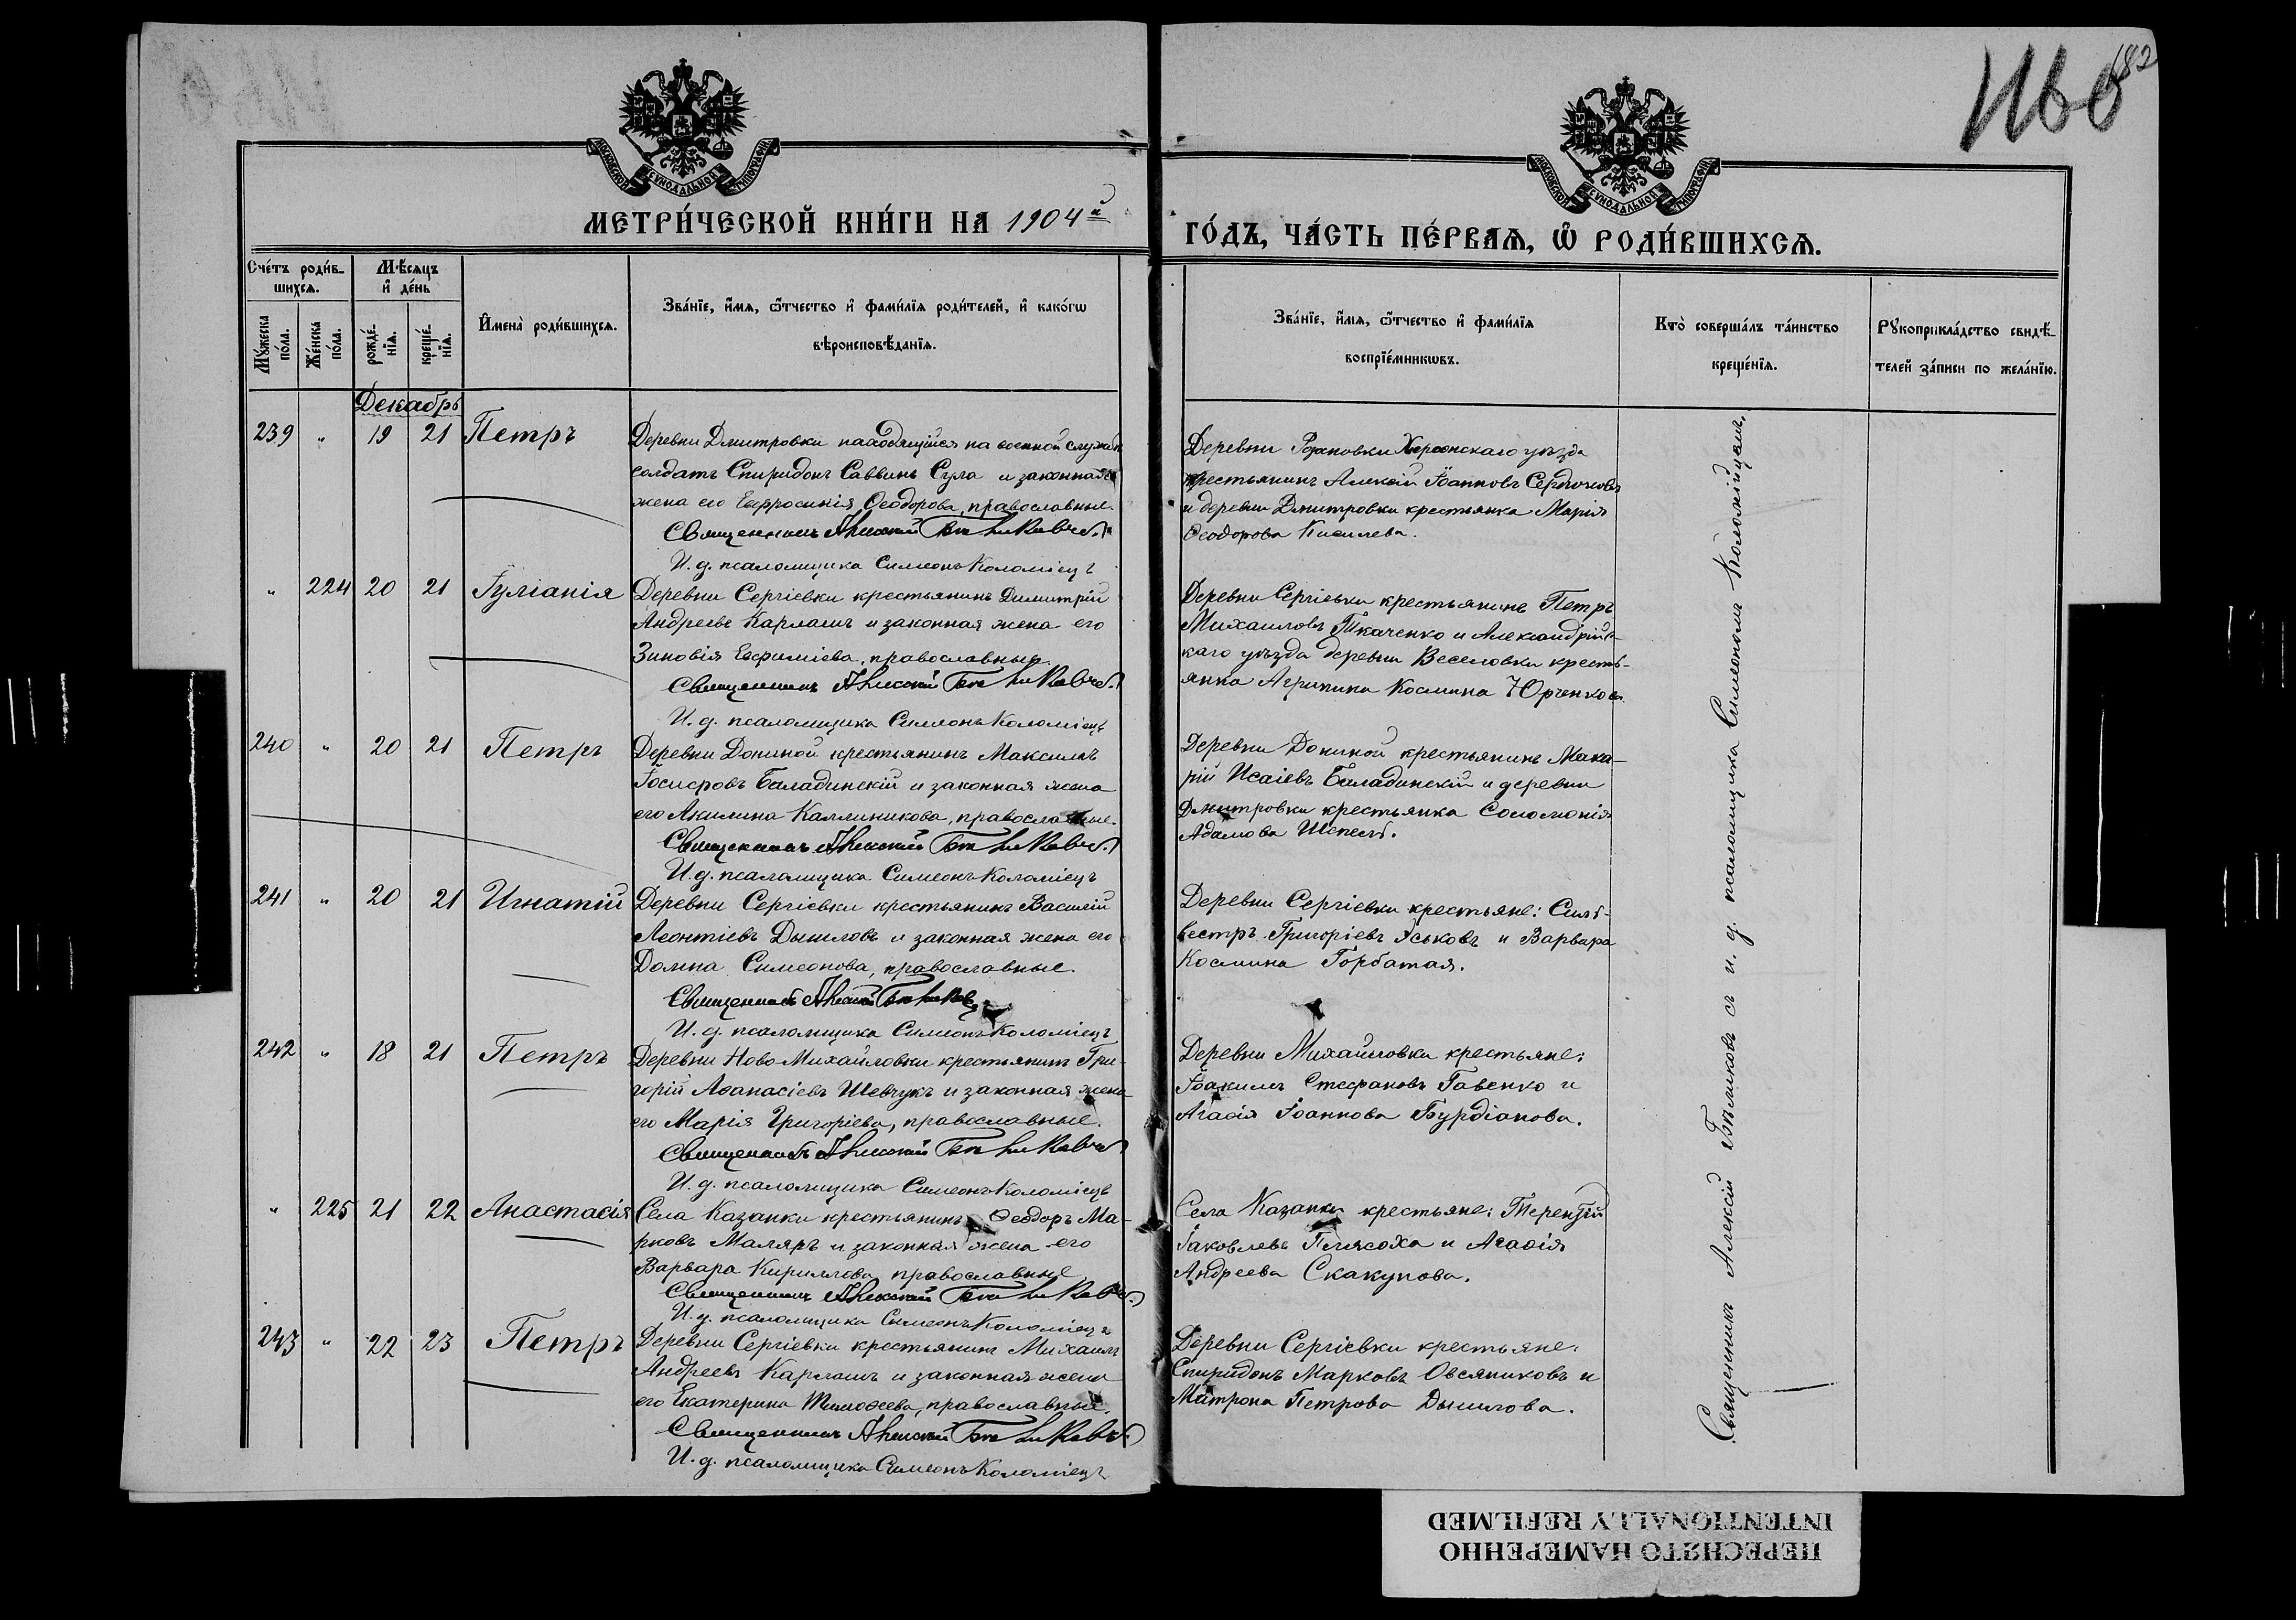 1160
182
МОСКОВСКОЙ СѴНОДАЛЬНОЙ ТИПОГРАФІИ
МОСКОВСКОЙ СѴНОДАЛЬНОЙ ТИПОГРАФІИ
МЕТРИ́ЧЕСКОЙ КНИ́ГИ НА 1904й
ГО́ДЪ, ЧА́СТЬ ПЕ́РВАѦ, Ѽ РОДИ́ВШИХСѦ.
Сче́тъ роди́в-
шихсѧ.
Мѣ́сѧцъ
и҆ де́нь
Мꙋ́жеска
по́ла.
Же́нска
по́ла.
рожде́-
нїѧ.
креще́-
нїѧ.
И҆мена̀ роди́вшихсѧ.
Зва́нїе, и҆́мѧ, ѻ҆́тчество и҆ фами́лїѧ роди́телей, и҆ како́гѡ
вѣроисповѣ́данїѧ.
Зва́нїе, и҆́мѧ, ѻ҆́тчество и҆ фами́лїѧ
воспрїе́мникѡвъ.
Кто̀ соверша́лъ та́инство
креще́нїѧ.
Рꙋкоприкла́дство свидѣ́-
телей за́писи по жела́нїю.
Декабрь
239 " 19 21 Петръ
Деревни Дмитровки находящійся на военной службѣ
солдатъ Спиридонъ Саввинъ Сула и законная
жена его Евфросинія Ѳеодорова, православные.
Священникъ Алексій Бѣликовъ
И. д. псаломщика Симеонъ Коломіецъ
Деревни Херсонскаго уѣзда
крестьянинъ Алексій Іоанновъ
и деревни Дмитровки крестьянка Марія
Ѳеодорова Киселева.
" 224 20 21 Іуліанія
Деревни Сергіевки крестьянинъ Димитрій
Андреевъ Карлашъ и законная жена его
Зиновія Евфиміева, православные.
Священникъ Алексій Бѣликовъ
И. д. псаломщика Симеонъ Коломіецъ
Деревни Сергіевки крестьянинъ Петръ
Михаиловъ Ткаченко и Александрійс-
каго уѣзда деревни Веселовки кресть-
янка Агрипина Космина Юрченкова.
240 " 20 21 Петръ
Деревни Дониной крестьянинъ Максимъ
Іосифовъ Баладинскій и законная жена
его Акилина Каллиникова, православные.
Священникъ Алексій Бѣликовъ
И. д. псаломщика Симеонъ Коломіецъ
Деревни Дониной крестьянинъ Мака-
рій Исаіевъ Баладинскій и деревни
Дмитровки крестьянка Соломонія
Адамова Шепель.
241 " 20 21 Игнатій
Деревни Сергіевки крестьянинъ Василій
Леонтіевъ Дышловъ и законная жена его
Домна Симеонова, православные.
Священникъ Алексій Бѣликовъ
И. д. псаломщика Симеонъ Коломіецъ
Деревни Сергіевки крестьяне: Силь-
вестръ Григоріевъ Уськовъ и Варвара
Космина Горбатая.
242 " 18 21 Петръ
Деревни Ново-Михайловки крестьянинъ Гри-
горій Аѳанасіевъ Шевчукъ и законная жена
его Марія Григоріева, православные.
Священникъ Алексій Бѣликовъ
И. д. псаломщика Симеонъ Коломіецъ
Деревни Михайловки крестьяне:
Іоакимъ Стефановъ Гавенко и
Агаѳія Іоаннова Бурдіанова.
" 225 21 22 Анастасія
Села Казанки крестьянинъ Ѳеодоръ Ма-
рковъ Маляръ и законная жена его
Варвара Кириллова православные
Священникъ Алексій Бѣликовъ
И. д. псаломщика Симеонъ Коломіецъ
Села Казанки крестьяне: Терентій
Іаковлевъ Плясоха и Агаѳія
Андреева Скакунова.
243 " 22 23 Петръ
Деревни Сергіевки крестьянинъ Михаилъ
Андреевъ Карлашъ и законная жена
его Екатерина Тимоѳеева, православные.
Священникъ Алексій Бѣликовъ
И. д. псаломщика Симеонъ Коломіецъ
Деревни Сергіевки крестьяне:
Спиридонъ Марковъ Овсяниковъ и
Матрона Петрова Дышлова.
Священникъ Алексій Бѣликовъ съ и. д. псаломщика Симеономъ Коломійцемъ.
ПЕРЕСНЯТО НАМЕРЕННО
INTENTIONALLY REFILMED